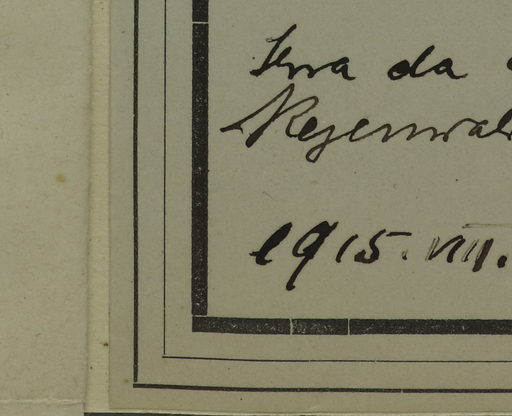 Serra da
Regenwal
1915. VIII.